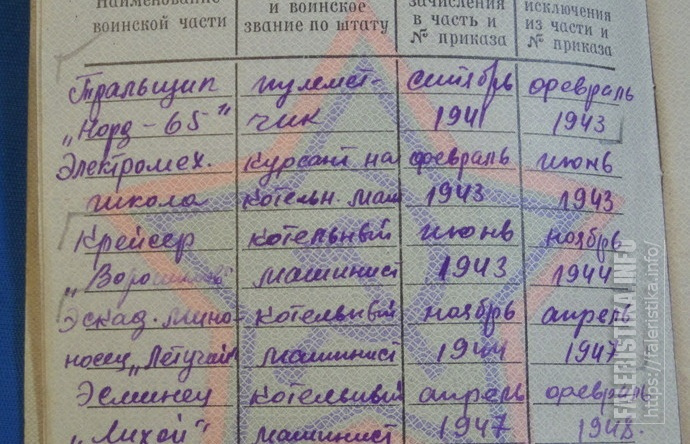 Наименование воинской части | и воинское звание по штату | зачисления в часть и № приказа | исключения из части и № приказа
Тральщик | пулемет- | сентябрь | февраль
„Норд-65" | чик | 1941 | 1943
Электромех. | курсант на | февраль | июнь
школа | котельн. маш | 1943 | 1943
Крейсер | котельный | июнь | ноябрь
„Ворошилов" | машинист | 1943 | 1944
Эскад. мино- | котельный | ноябрь | апрель
носец „Летучий" | машинист | 1944 | 1947
Эсминец | котельный | апрель | февраль
„Лихой" | машинист | 1947 | 1948.
FALERISTIKA.INFO
https://faleristika.info/